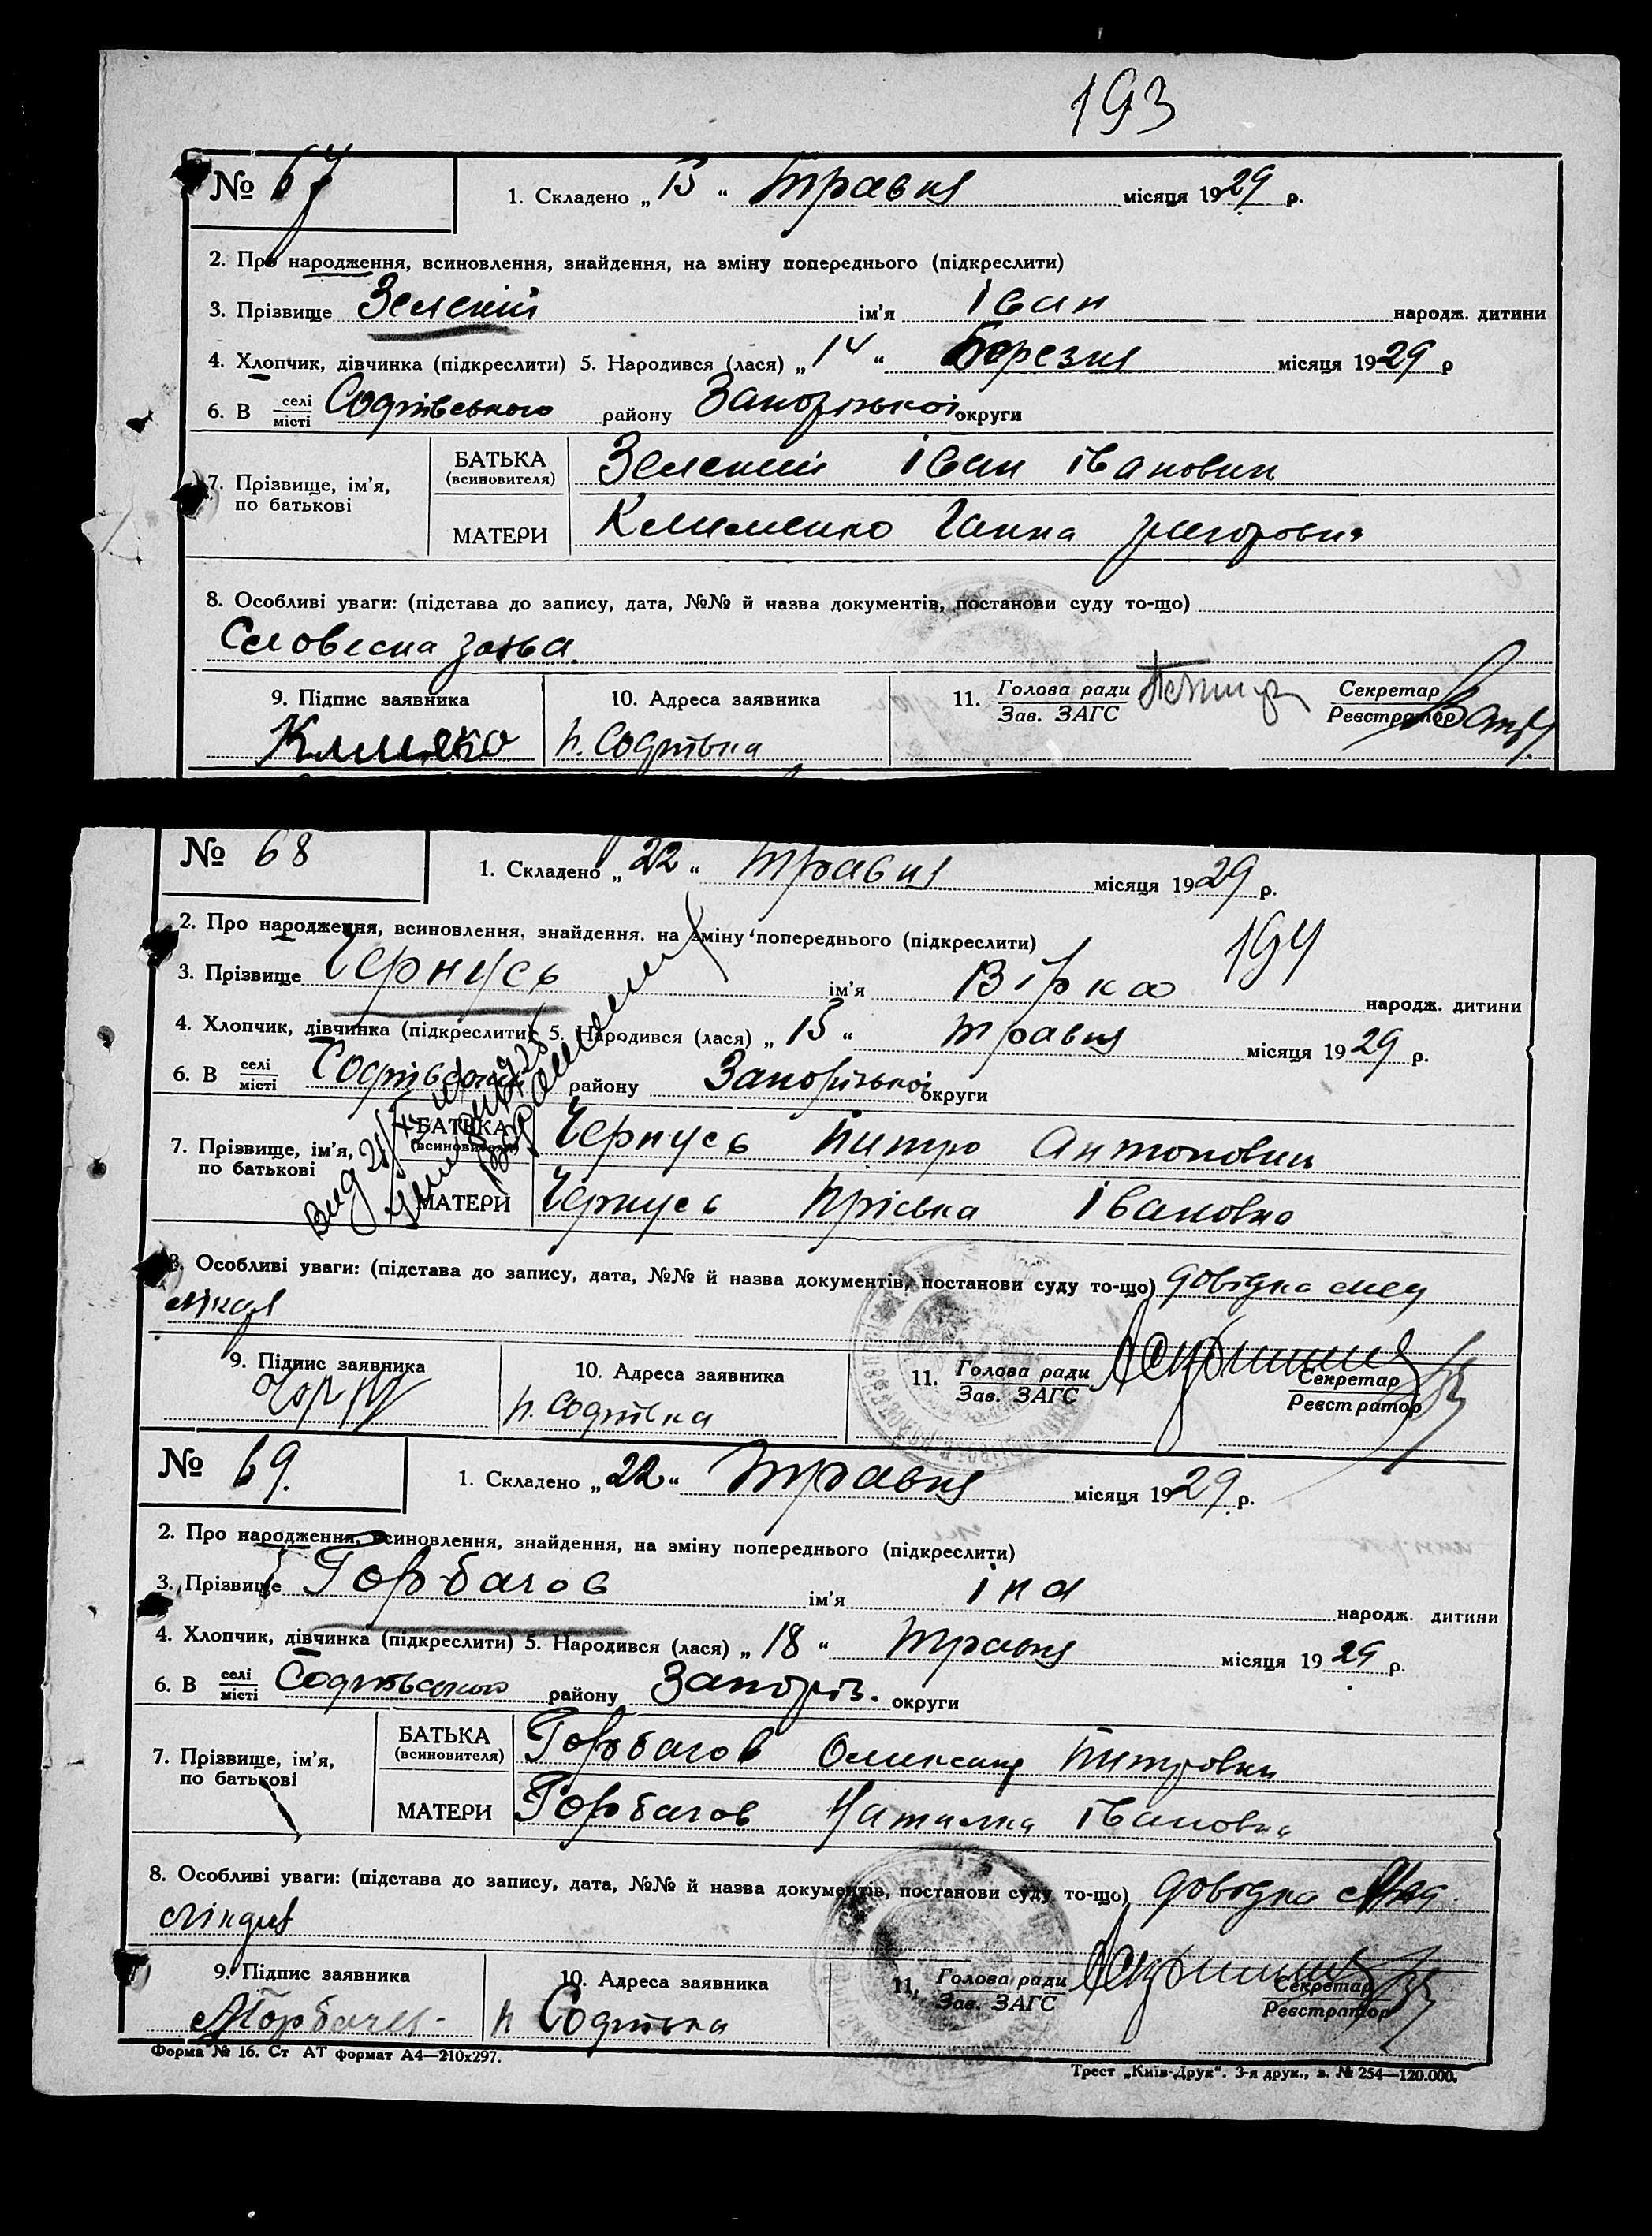 193
№ 67 1. Складено „ 15 “ травня місяця 1929 р.
2. Про народження, всиновлення, знайдення, на зміну попереднього (підкреслити)
3. Прізвище Зелский ім'я Іван народж. дитини
4. Хлопчик, дівчинка (підкреслити) 5. Народився (лася) „ 14 “ Березня місяця 1929 р
6. В селі/місті Софіївського району Запорізької округи
7. Прізвище, ім'я, по батькові
БАТЬКА (всиновителя) Зелский Іван Іванович
МАТЕРИ Клименко Ганна Григоровна
8. Особливі уваги: (підстава до запису, дата, №№ й назва документів, постанови суду то-що)
Словесна заява.
9. Підпис заявника 10. Адреса заявника 11. Голова ради/Зав. ЗАГС Секретар/Реєстратор
п. Софіївка
№ 68 1. Складено „ 22 “ травня місяця 1929 р.
2. Про народження, всиновлення, знайдення, на зміну попереднього (підкреслити)
194
3. Прізвище Чернусь ім'я Вірка народж. дитини
4. Хлопчик, дівчинка (підкреслити) 5. Народився (лася) „ 15 “ травня місяця 1929 р.
6. В селі/місті Софіївского району Запорізької округи
7. Прізвище, ім'я, по батькові
БАТЬКА (всиновителя) Чернусь Питро Антонович
МАТЕРИ Чернусь Пріська Івановна
8. Особливі уваги: (підстава до запису, дата, №№ й назва документів, постанови суду то-що) довідка мед
лікаря
9. Підпис заявника 10. Адреса заявника 11. Голова ради/Зав. ЗАГС Секретар/Реєстратор
п. Софіївка
№ 69. 1. Складено „ 22 “ травня місяця 1929 р.
2. Про народження, всиновлення, знайдення, на зміну попереднього (підкреслити)
3. Прізвище Горбачов ім'я Іна народж. дитини
4. Хлопчик, дівчинка (підкреслити) 5. Народився (лася) „ 18 “ травня місяця 1929 р.
6. В селі/місті Софіївського району Запоріз. округи
7. Прізвище, ім'я, по батькові
БАТЬКА (всиновителя) Горбачов Олександ Питрович
МАТЕРИ Горбачов Наталка Івановна
8. Особливі уваги: (підстава до запису, дата, №№ й назва документів, постанови суду то-що) довідка мед.
лікаря
9. Підпис заявника 10. Адреса заявника 11. Голова ради/Зав. ЗАГС Секретар/Реєстратор
п Софіївка
Форма № 16. Ст АТ формат А4—210х297. Трест „Київ-Друк“. 3-я друк., з. № 254—120.000.